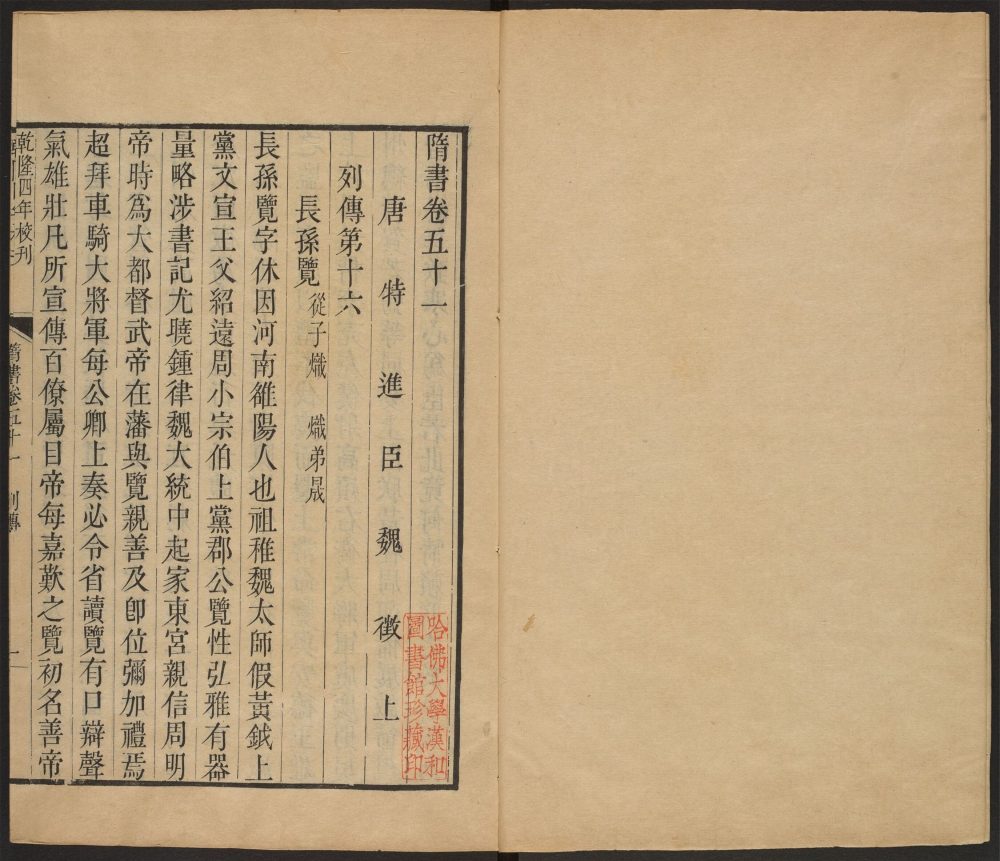 隋書卷五十一
唐特進臣魏徵上
列傳第十六
長孫覽 從子熾 熾弟晟
長孫覽字休因河南雒陽人也祖稚魏太師假黃鉞上
黨文宣王父紹遠周小宗伯上黨郡公覽性弘雅有器
量略涉書記尤曉鍾律魏大統中起家東宮親信周明
帝時爲大都督武帝在藩與覽親善及卽位彌加禮焉
超拜車騎大將軍每公卿上奏必令省讀覽有口辯聲
氣雄壯凡所宣傳百僚屬目帝每嘉歎之覽初名善帝
乾隆四年校刊
隋書卷五十一
列傳
一
哈佛大學漢和
圖書館珍藏印